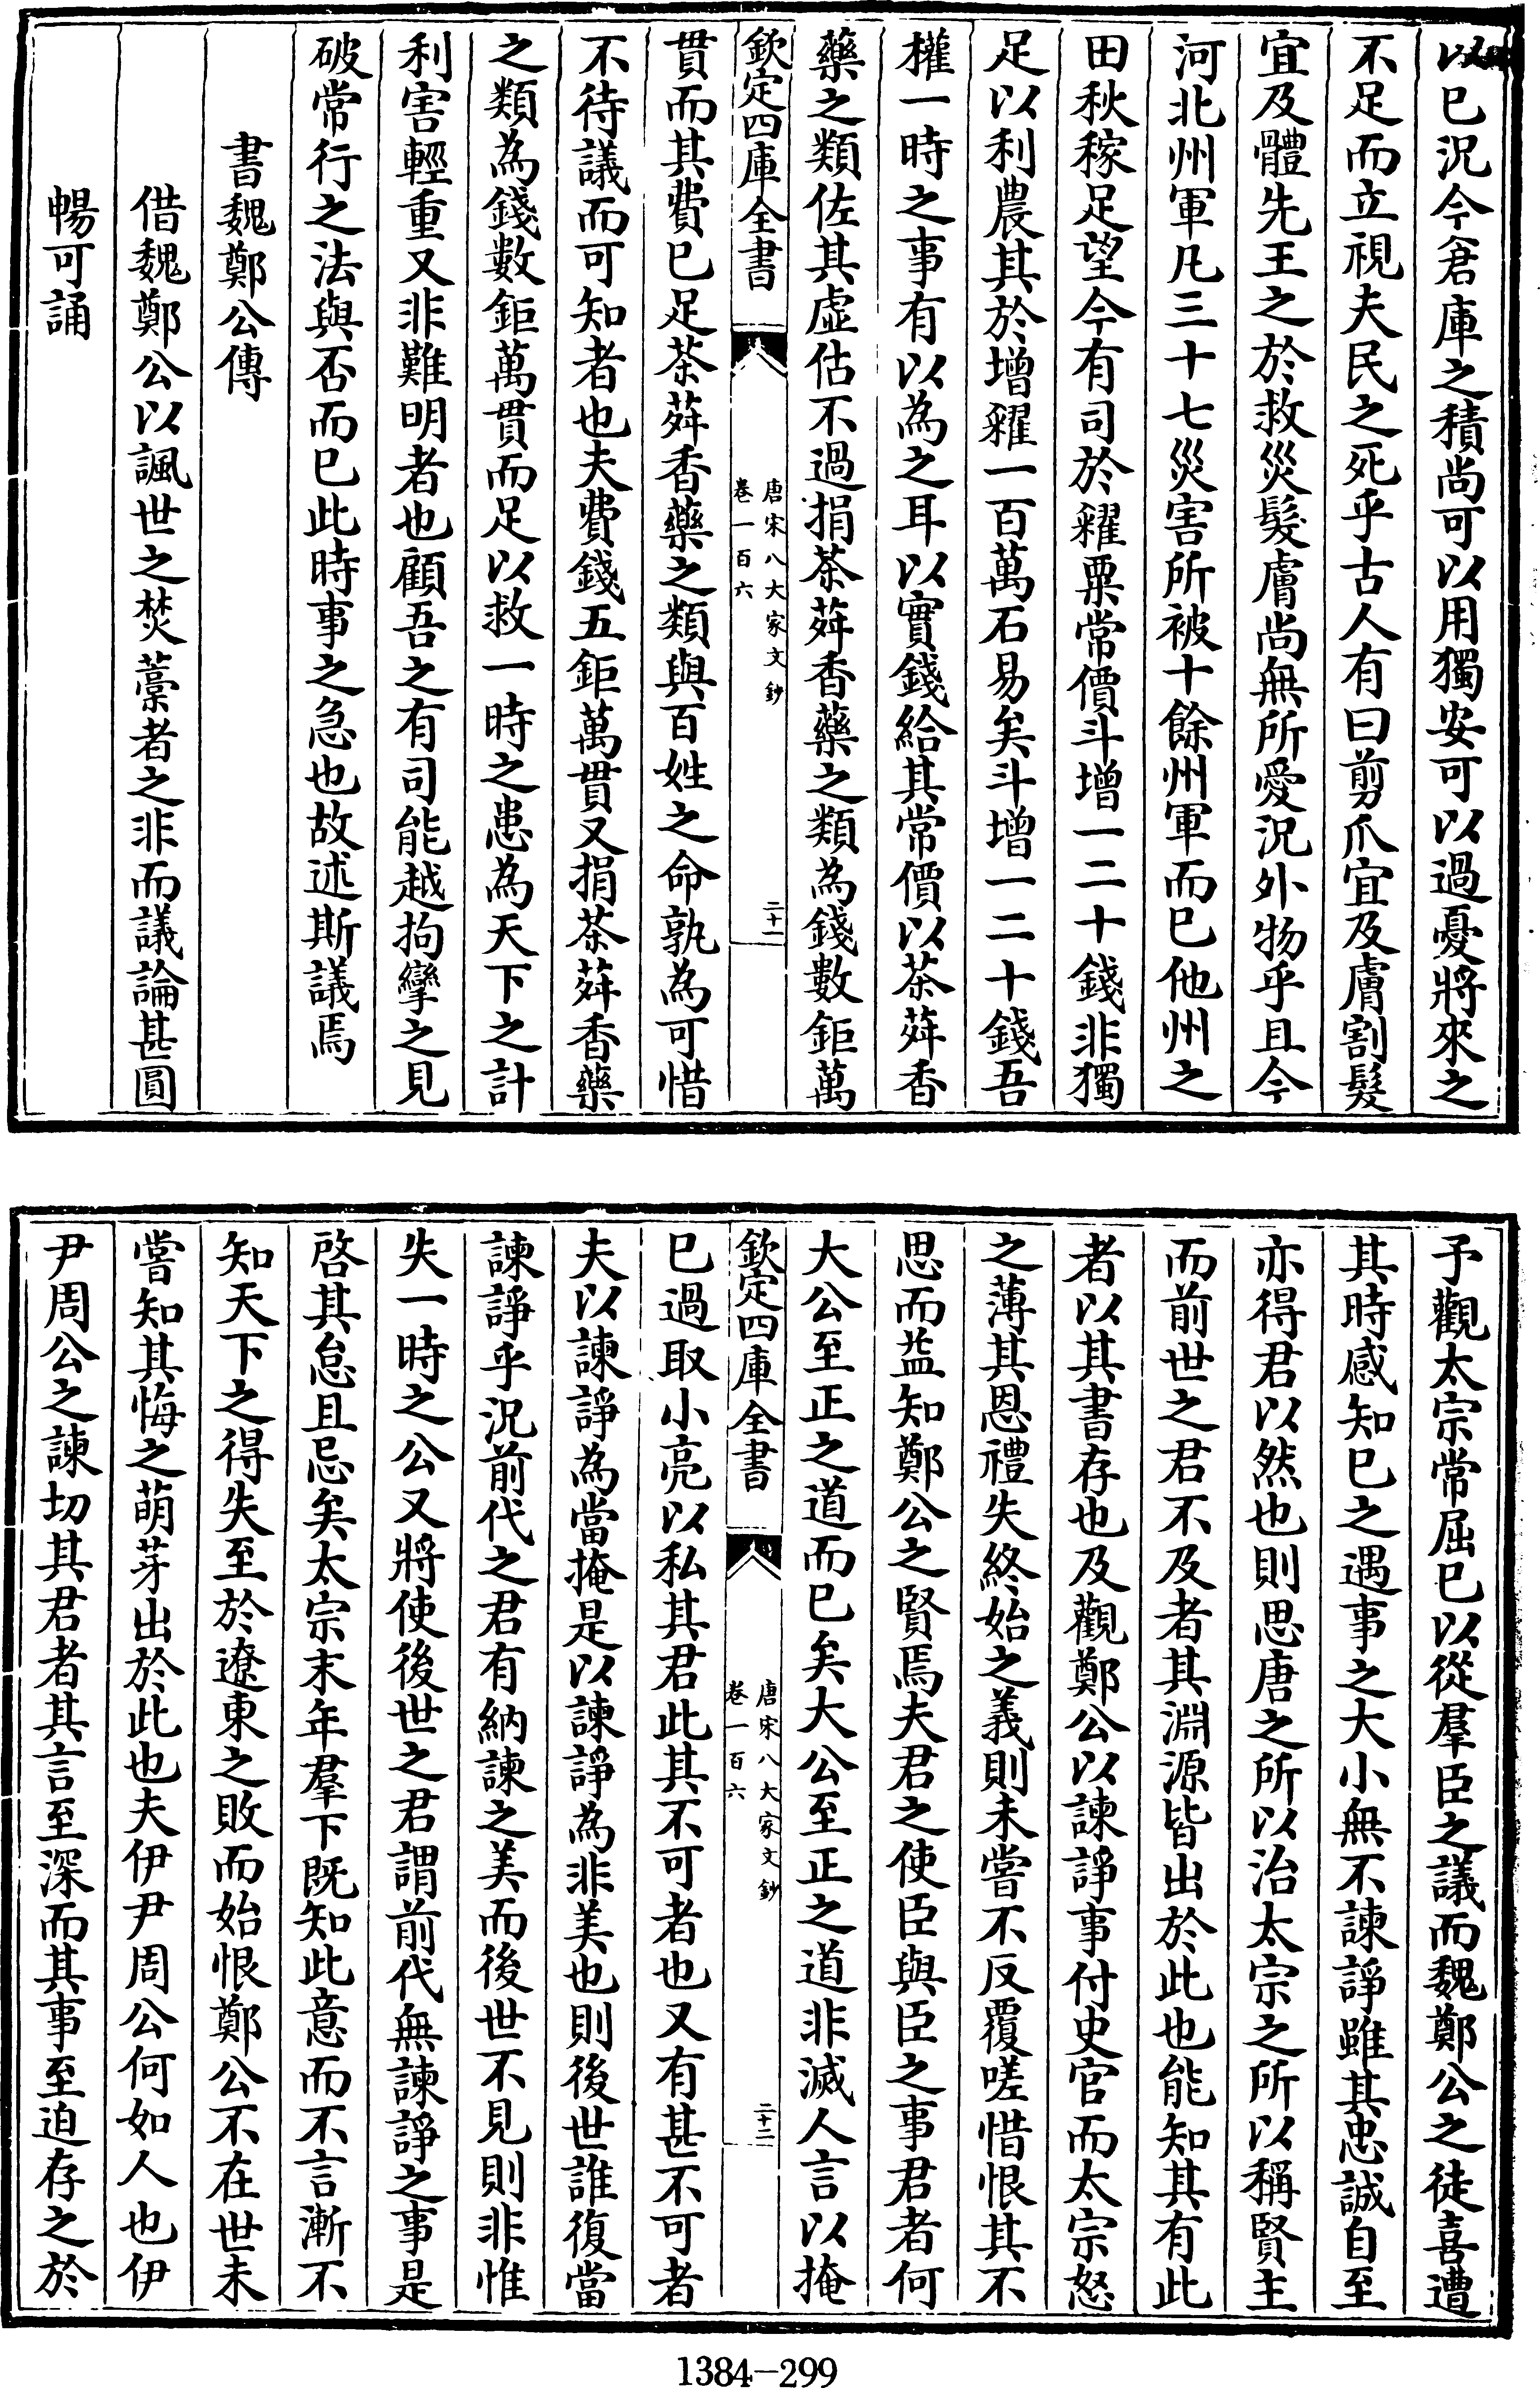 以已況今倉庫之積尚可以用獨安可以過憂將來之
不足而立視夫民之死乎古人有曰剪爪宜及膚割髮
宜及體先王之於救災髮膚尚無所愛況外物乎且今
河北州軍凡三十七災害所被十餘州軍而已他州之
田秋稼足望今有司於糴粟常價斗增一二十錢非獨
足以利農其於增糴一百萬石易矣斗增一二十錢吾
權一時之事有以為之耳以實錢給其常價以茶荈香
藥之類佐其虛估不過捐茶荈香藥之類為錢數鉅萬
欽定四庫全書
唐宋八大家文鈔
卷一百六
二十一
貫而其費已足茶荈香藥之類與百姓之命孰為可惜
不待議而可知者也夫費錢五鉅萬貫又捐茶荈香藥
之類為錢數鉅萬貫而足以救一時之患為天下之計
利害輕重又非難明者也顧吾之有司能越拘攣之見
破常行之法與否而已此時事之急也故述斯議焉
書魏鄭公傳
借魏鄭公以諷世之焚藁者之非而議論甚圓
暢可誦
予觀太宗常屈已以從羣臣之議而魏鄭公之徒喜遭
其時感知已之遇事之大小無不諫諍雖其忠誠自至
亦得君以然也則思唐之所以治太宗之所以稱賢主
而前世之君不及者其淵源皆出於此也能知其有此
者以其書存也及觀鄭公以諫諍事付史官而太宗怒
之薄其恩禮失終始之義則未嘗不反覆嗟惜恨其不
思而益知鄭公之賢焉夫君之使臣與臣之事君者何
大公至正之道而已矣大公至正之道非滅人言以掩
欽定四庫全書
唐宋八大家文鈔
卷一百六
二十二
已過取小亮以私其君此其不可者也又有甚不可者
夫以諫諍為當掩是以諫諍為非美也則後世誰復當
諫諍乎況前代之君有納諫之美而後世不見則非惟
失一時之公又將使後世之君謂前代無諫諍之事是
啓其怠且忌矣太宗末年羣下既知此意而不言漸不
知天下之得失至於遼東之敗而始恨鄭公不在世未
嘗知其悔之萌芽出於此也夫伊尹周公何如人也伊
尹周公之諫切其君者其言至深而其事至迫存之於
1384-299